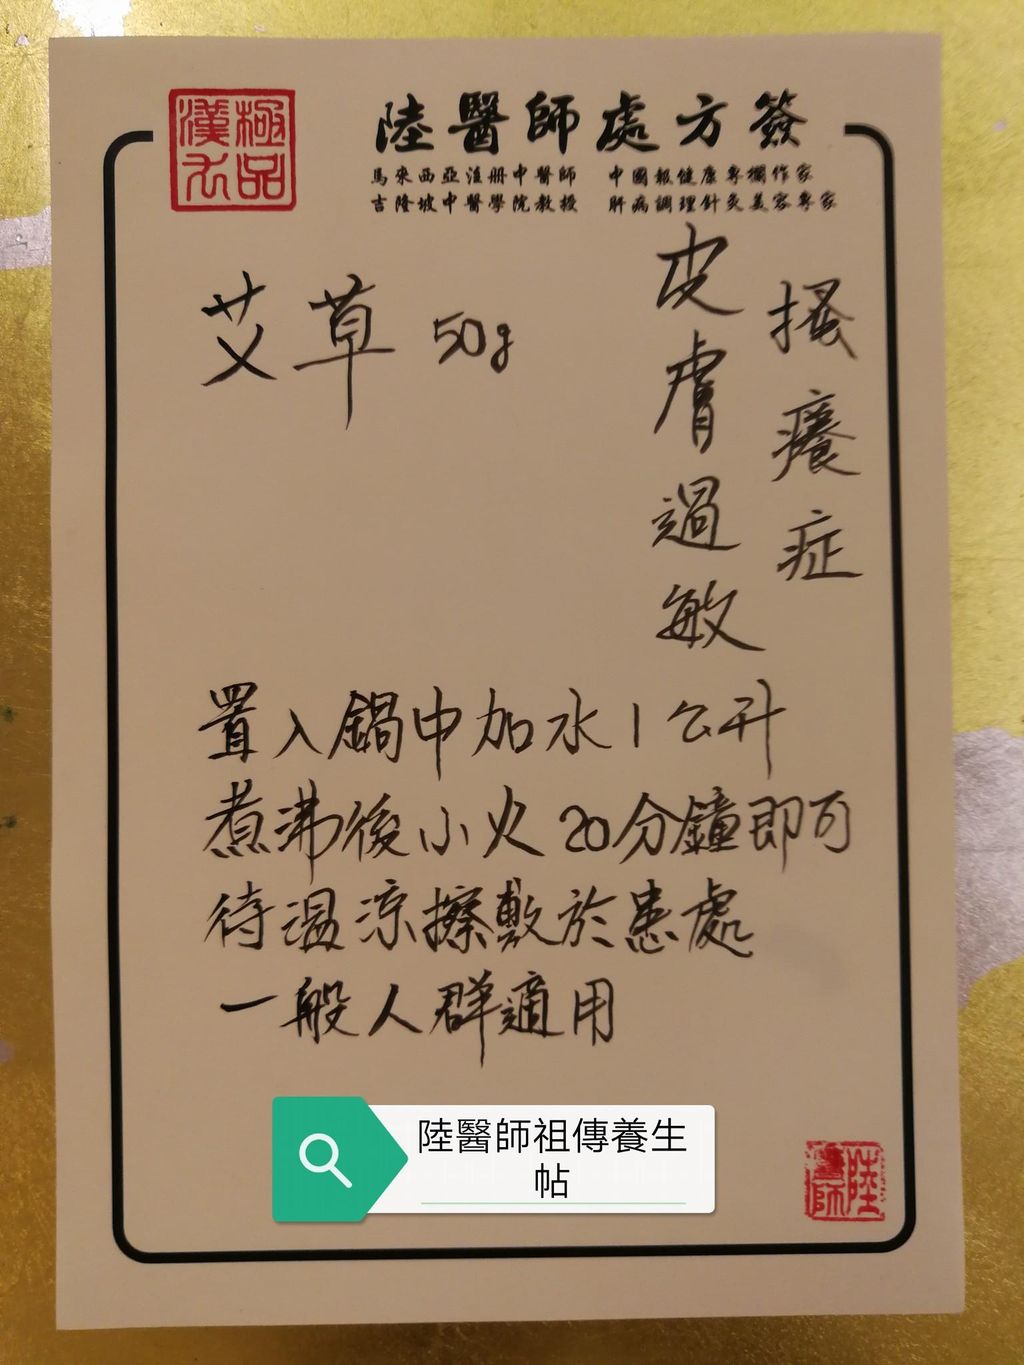 極品
漢方
陸醫師處方簽
馬來西亞注册中醫師　中國報健康專欄作家
吉隆坡中醫學院教授　肝病調理針灸美容專家
搔癢症
皮膚過敏
艾草 50g
置入鍋中加水1公升
煮沸後小火20分鐘即可
待溫涼擦敷於患處
一般人群適用
陸醫師祖傳養生
帖
陸醫師